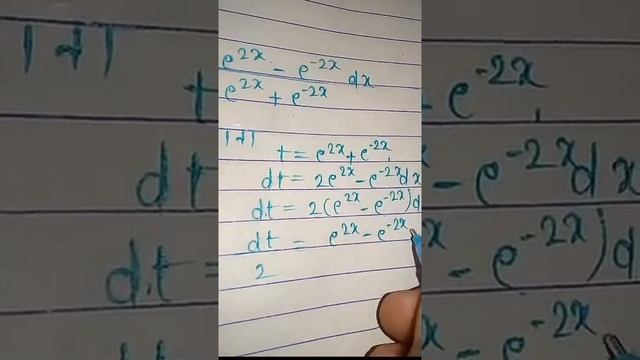 e^{2x} - e^{-2x} dx
e^{2x} + e^{-2x}
t = e^{2x} + e^{-2x}
dt = 2e^{2x} - e^{-2x} dx
dt = 2(e^{2x} - e^{-2x}) d
dt = e^{2x} - e^{-2x}
2